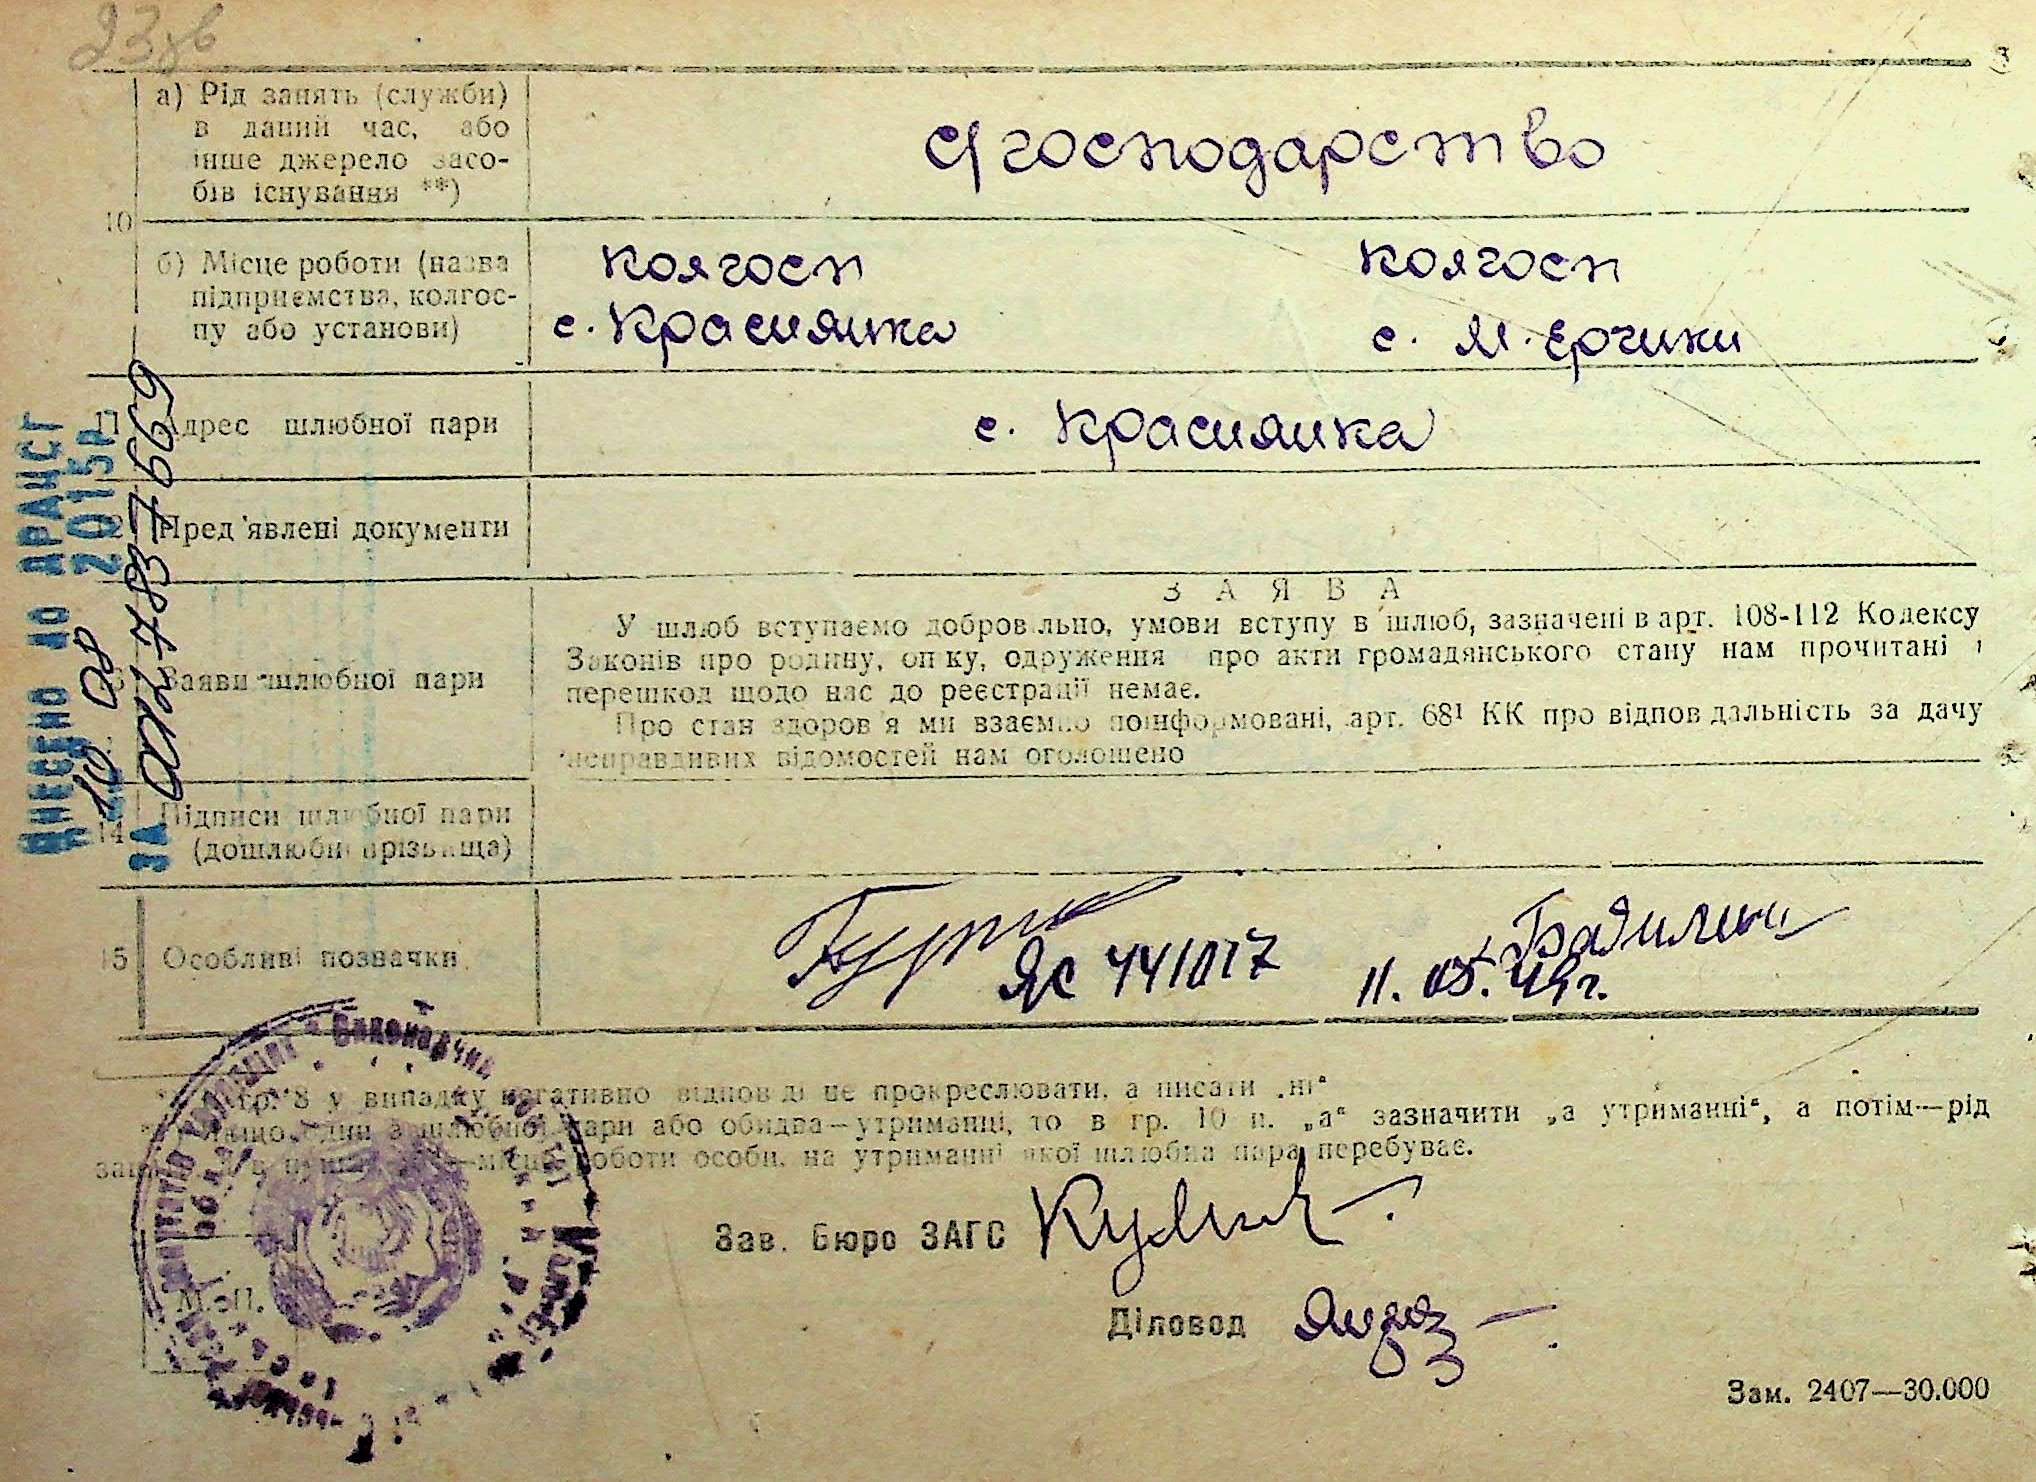 23зв
а) Рід занять (служби)
в даний час, або
інше джерело засо-
бів існування **)
с/господарство
10
б) Місце роботи (назва
підприємства, колгос-
пу або установи)
колгосп
с. Краснянка
колгосп
с. М. Єрчики
11 Адрес шлюбної пари
с. Краснянка
12 Пред'явлені документи
З А Я В А
У шлюб вступаємо добровільно, умови вступу в шлюб, зазначені в арт. 108-112 Кодексу
Законів про родину, опіку, одруження про акти громадянського стану нам прочитані і
перешкод щодо нас до реєстрації немає.
Про стан здоров'я ми взаємно поінформовані, арт. 68¹ КК про відповідальність за дачу
неправдивих відомостей нам оголошено
13 Заяви шлюбної пари
14 Підписи шлюбної пари
(дошлюбні прізвища)
15 Особливі позначки
ЯС 441017
11. 05. 49г.
гр. 8 у випадку негативно відповіді не прокреслювати, а писати „ні“
якщо один з шлюбної пари або обидва—утриманці, то в гр. 10 п. „а“ зазначити „а утриманні“, а потім—рід
місце роботи особи, на утриманні якої шлюбна пара перебуває.
Зав. Бюро ЗАГС
Діловод
М. П.
Зам. 2407—30.000
Внесено до ДРАЦСГ
10 08 2015р.
за 00127837669